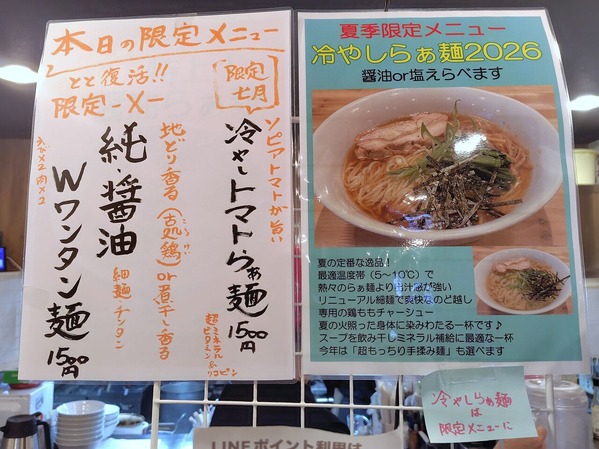 本日の限定メニュー
限定
七月
ソピアトマトが旨い
冷やしトマトらぁ麺
1500円
超ミネラル
ビタミン&
リコピン
とと復活!!
限定-メ-
地どり香る
or 煮干し香る
純、醤油
細麺 チンタン
Wワンタン麺
1500円
えび×2 肉×2
夏季限定メニュー
冷やしらぁ麺2026
醤油or塩えらべます
夏の定番な逸品!
最適温度帯(5~10℃)で
熱々のらぁ麺より出汁感が強い
リニューアル細麺で爽快なのど越し
専用の鶏ももチャーシュー
夏の火照った身体に染みわたる一杯です♪
スープを飲み干しミネラル補給に最適な一杯
今年は「超もっちり手揉み麺」も選べます
冷やしらぁ麺
は
限定メニューに
LINEポイント利用は